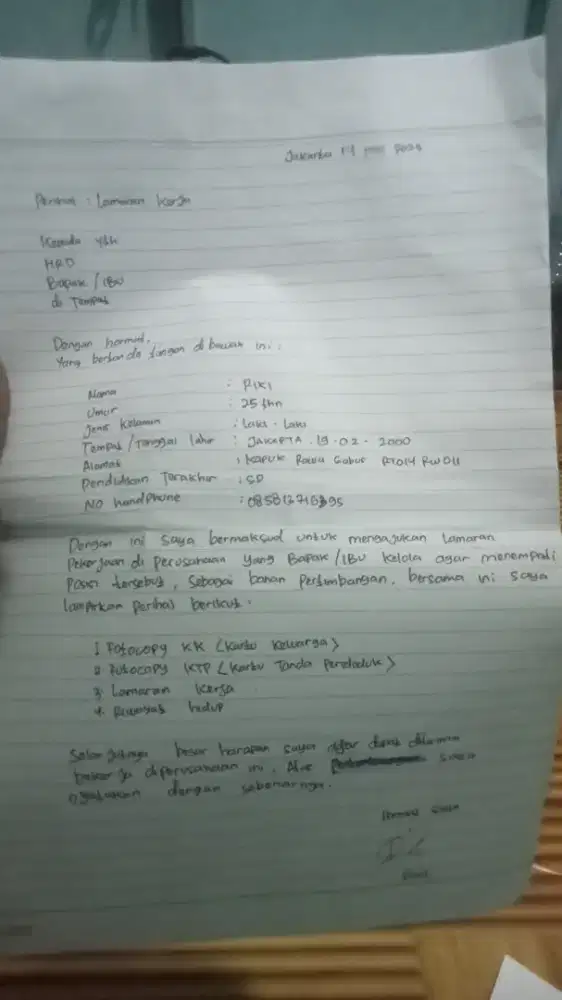 Jakarta
Perihal : Lamaran Kerja
Kepada Yth
HRD
Bapak / IBU
di Tempat
Dengan hormat,
Yang bertanda tangan di bawah ini :
Nama : RIKI
Umur : 25 thn
Jenis Kelamin : Laki - Laki
Tempat / Tanggal lahir : JAKARTA . 19 . 02 . 2000
Alamat : Kapuk Rawa Gabus RT014 RW011
Pendidikan Terakhir : SD
NO handphone :
Dengan ini saya bermaksud untuk mengajukan lamaran
Pekerjaan di Perusahaan yang Bapak / IBU kelola agar menempati
Posisi tersebut, sebagai bahan Pertimbangan, bersama ini saya
lampirkan perihal berikut.
1. Fotocopy KK (Kartu Keluarga)
2. Fotocopy KTP (Kartu Tanda Penduduk)
3. Lamaran Kerja
4. Riwayat hidup
Selanjutnya besar harapan saya agar dapat diterima
bekerja diperusahaan ini,
dengan sebenarnya.
Hormat saya